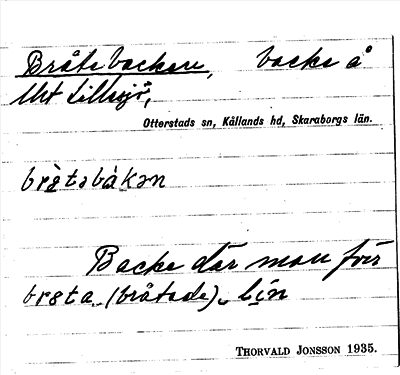 Bråtebacken, backe å
Utt Lillesjö,
Otterstads sn, Kållands hd, Skaraborgs län.
brὰtəbàkən
Backe där man förr
brøta (bråtade) lin
THORVALD JONSSON 1935.